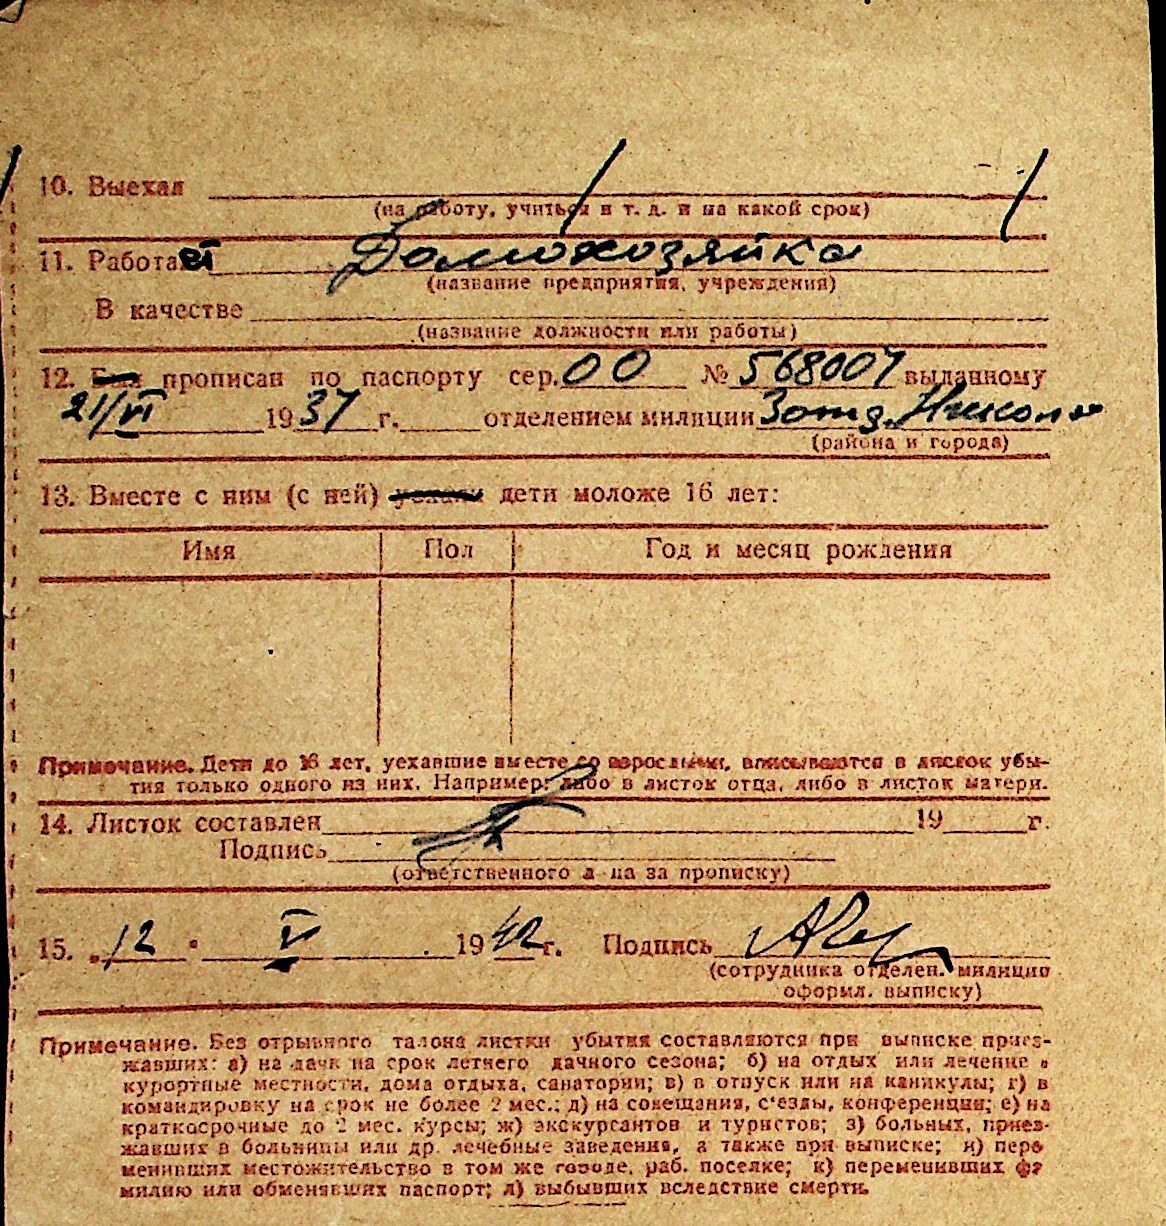 10. Выехал
(на работу, учиться и т. д. и на какой срок)
11. Работает Домохозяйка
(название предприятия, учреждения)
В качестве
(название должности или работы)
12. Был прописан по паспорту сер. 00 № 568007 выданному
21/VI 1937 г. отделением милиции 3 отд. Никол
(района и города)
13. Вместе с ним (с ней) уехали дети моложе 16 лет:
Имя Пол Год и месяц рождения
Примечание. Дети до 16 лет, уехавшие вместе со взрослыми, вписываются в листок убы-
тия только одного из них. Например: либо в листок отца, либо в листок матери.
14. Листок составлен 19 г.
Подпись
(ответственного л-ца за прописку)
15. „12 " V 1942 г. Подпись
(сотрудника отделен. милиции
оформл. выписку)
Примечание. Без отрывного талона листки убытия составляются при выписке приез-
жавших: а) на дачи на срок летнего дачного сезона; б) на отдых или лечение в
курортные местности, дома отдыха, санатории; в) в отпуск или на каникулы; г) в
командировку на срок не более 2 мес.; д) на совещания, с'езды, конференции; е) на
краткосрочные до 2 мес. курсы; ж) экскурсантов и туристов; з) больных, приез-
жавших в больницы или др. лечебные заведения, а также при выписке; и) пере
менивших местожительство в том же городе, раб. поселке; к) переменивших фа
милию или обменявших паспорт; л) выбывших вследствие смерти.